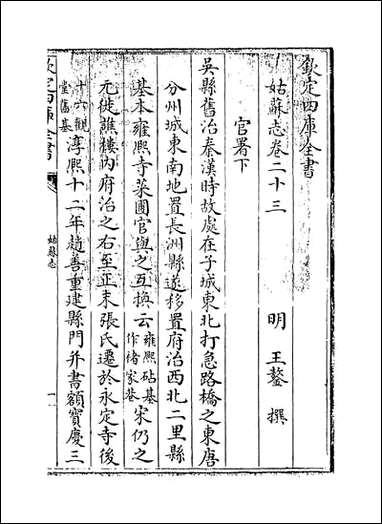 欽定四庫全書
姑蘇志卷二十三
明 王鏊 撰
官署下
吳縣舊治秦漢時故處在子城東北打急路橋之東唐
分州城東南地置長洲縣遂移置府治西北二里縣
基本雍熙寺菜圃官與之互換云雍熙砧基作楮家巷宋仍之
元徙譙樓內府治之右至正末張氏遷於永定寺後
十六觀堂舊基淳熙十二年趙善重建縣門并書額寳慶三
欽定四庫全書
姑蘇志
一